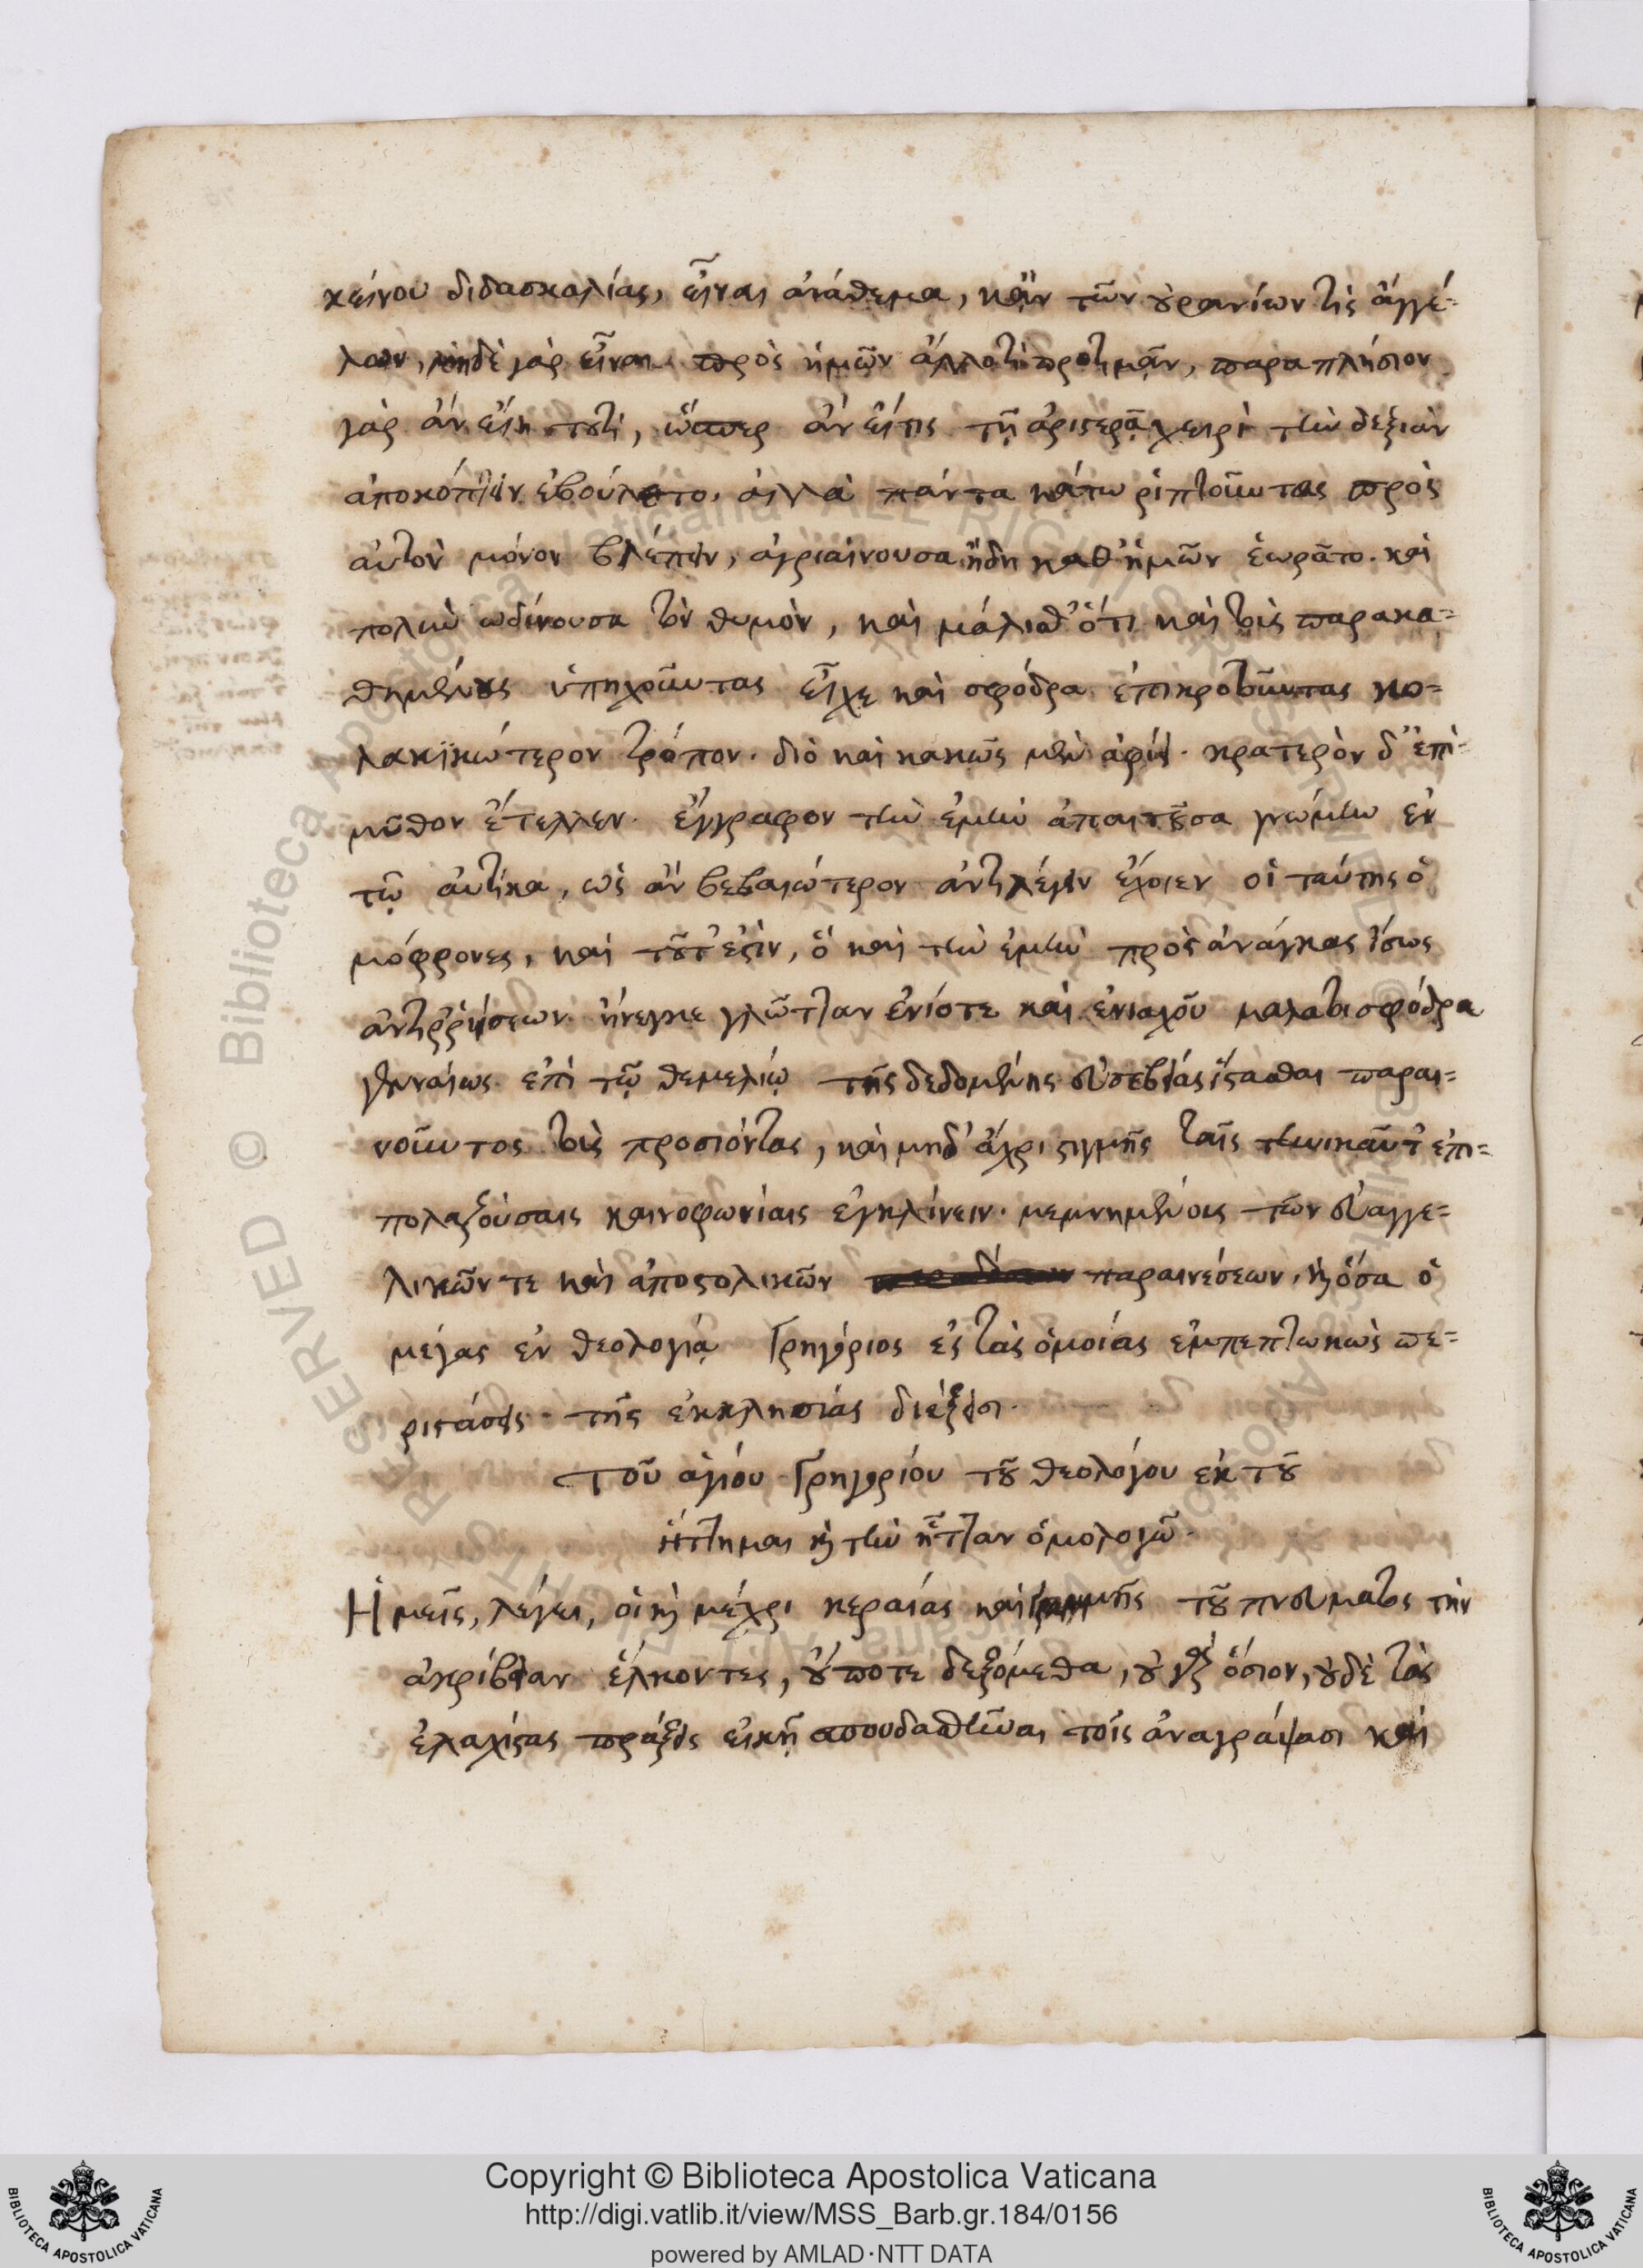 κείνου διδασκαλίας, εἶναι ἀνάθεμα, κἂν τῶν οὐρανίων τὶς ἀγγέ=
λων, μηδὲ γὰρ εἶναι πρὸς ἡμῶν ἄλλό τι προτιμᾶν, παραπλήσιον
γὰρ ἂν εἴη τουτὶ, ὥσπερ ἂν εἴ τις τῇ ἀριστερᾷ χειρὶ τὴν δεξιὰν
ἀποκόπτειν ἐβούλετο. ἀλλὰ πάντα κάτω ῥιπτοῦντας πρὸς
αὐτὸν μόνον βλέπειν, ἀγριαίνουσα ἤδη καθ' ἡμῶν ἑωρᾶτο. καὶ
πολὺν ὠδίνουσα τὸν θυμὸν, καὶ μάλισθ' ὅτι καὶ τοὺς παρακα=
θημένους ὑπηχοῦντας εἶχε καὶ σφόδρα ἐπικροτοῦντας κο=
λακικώτερον τρόπον. διὸ καὶ κακῶς μὲν ἀφίει. κρατερὸν δ' ἐπὶ
μῦθον ἔτελλεν. ἔγγραφον τὴν ἐμὴν ἀπαιτοῦσα γνώμην ἐν
τῷ αὐτίκα, ὡς ἂν βεβαιώτερον ἀντιλέγειν ἔχοιεν οἱ ταύτης ὁ
μόφρονες, καὶ τοῦτ' ἐστὶν, ὃ καὶ τὴν ἐμὴν πρὸς ἀνάγκας ἴσως
ἀντιῤῥήσεων ἤνεγκε γλῶτταν ἐνίοτε καὶ ἐνιαχοῦ μάλά τοι σφόδρα
γενναίως ἐπὶ τῷ θεμελίῳ τῆς δεδομένης εὐσεβείας ἵστασθαι παραι=
νοῦντος τοὺς προσιόντας, καὶ μηδ' ἄχρι στιγμῆς ταῖς τηνικαῦτ' ἐπι=
πολαζούσαις καινοφωνίαις ἐγκλίνειν. μεμνημένοις τῶν εὐαγγε=
λικῶν τε καὶ ἀποστολικῶν παραινέσεων, καὶ ὅσα ὁ
μέγας ἐν θεολογίᾳ Γρηγόριος ἐς τὰς ὁμοίας ἐμπεπτωκὼς πε=
ριστάσεις τῆς ἐκκλησίας διέξεισι.
Τοῦ ἁγίου Γρηγορίου τοῦ θεολόγου ἐκ τοῦ
ἥττημαι καὶ τὴν ἧτταν ὁμολογῶ.
Ἡμεῖς, λέγει, οἱ καὶ μέχρι κεραίας καὶ γραμμῆς τοῦ πνεύματος τὴν
ἀκρίβειαν ἕλκοντες, οὔποτε δεξόμεθα, οὐ γὰρ ὅσιον, οὐδὲ τὰς
ἐλαχίστας πράξεις εἰκῇ σπουδασθῆναι τοῖς ἀναγράψασι καὶ
Copyright © Biblioteca Apostolica Vaticana
http://digi.vatlib.it/view/MSS_Barb.gr.184/0156
powered by AMLAD·NTT DATA